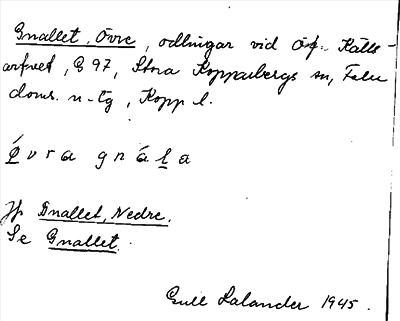 Gnallet, Övre, odlingar vid Öf. Källs-
arfvet, G 97, Stora Kopparbergs sn, Falu
doms. n-tg, Kopp l.
Övra gnála
Jfr Gnallet, Nedre.
Se Gnallet.
Gull Lalander 1945.